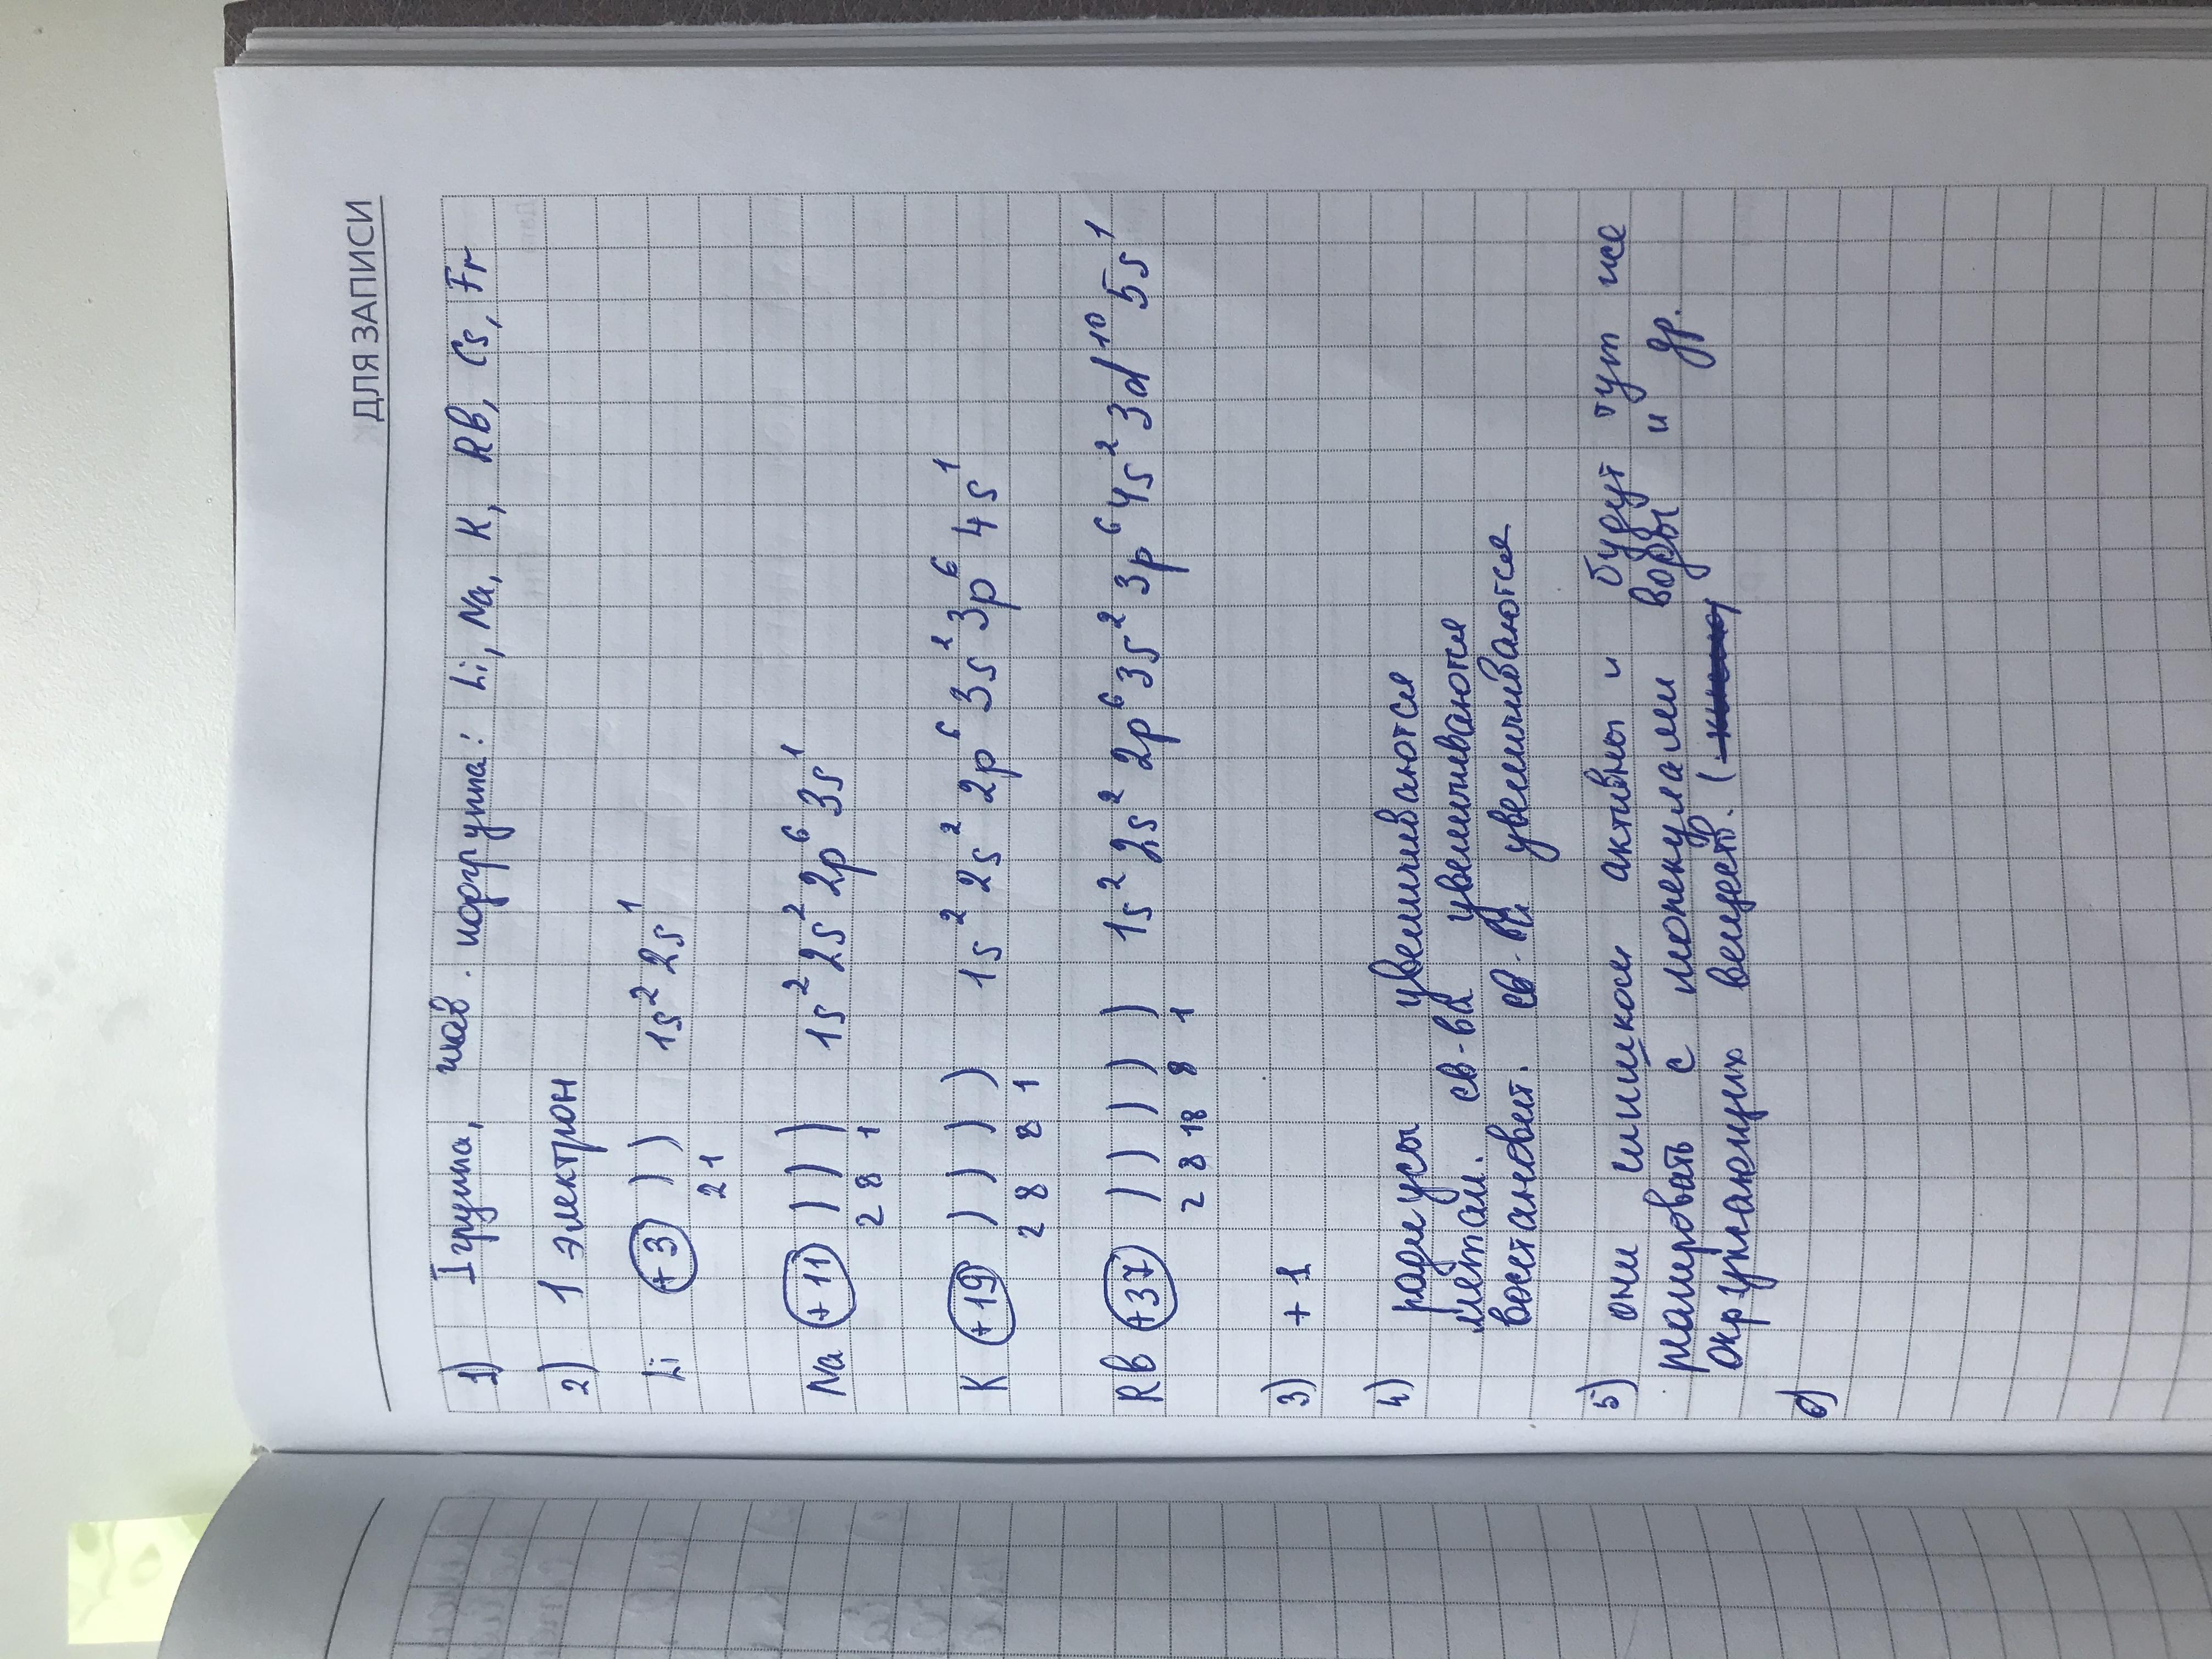 ДЛЯ ЗАПИСИ
1) I группа, глав. подгруппа: Li, Na, K, Rb, Cs, Fr
2) 1 электрон
Li +3 ) ) 1s² 2s¹
2 1
Na +11 ) ) ) 1s² 2s² 2p⁶ 3s¹
2 8 1
K +19 ) ) ) ) 1s² 2s² 2p⁶ 3s² 3p⁶ 4s¹
2 8 8 1
Rb +37 ) ) ) ) ) 1s² 2s² 2p⁶ 3s² 3p⁶ 4s² 3d¹⁰ 5s¹
2 8 18 8 1
3) +1
4) радиусы увеличиваются
метал. св-ва увеличиваются
восстановит. св- увеличиваются
5) они слишком активны и будут тут же
реагировать с молекулами воды и др.
окружающих веществ. (
6)